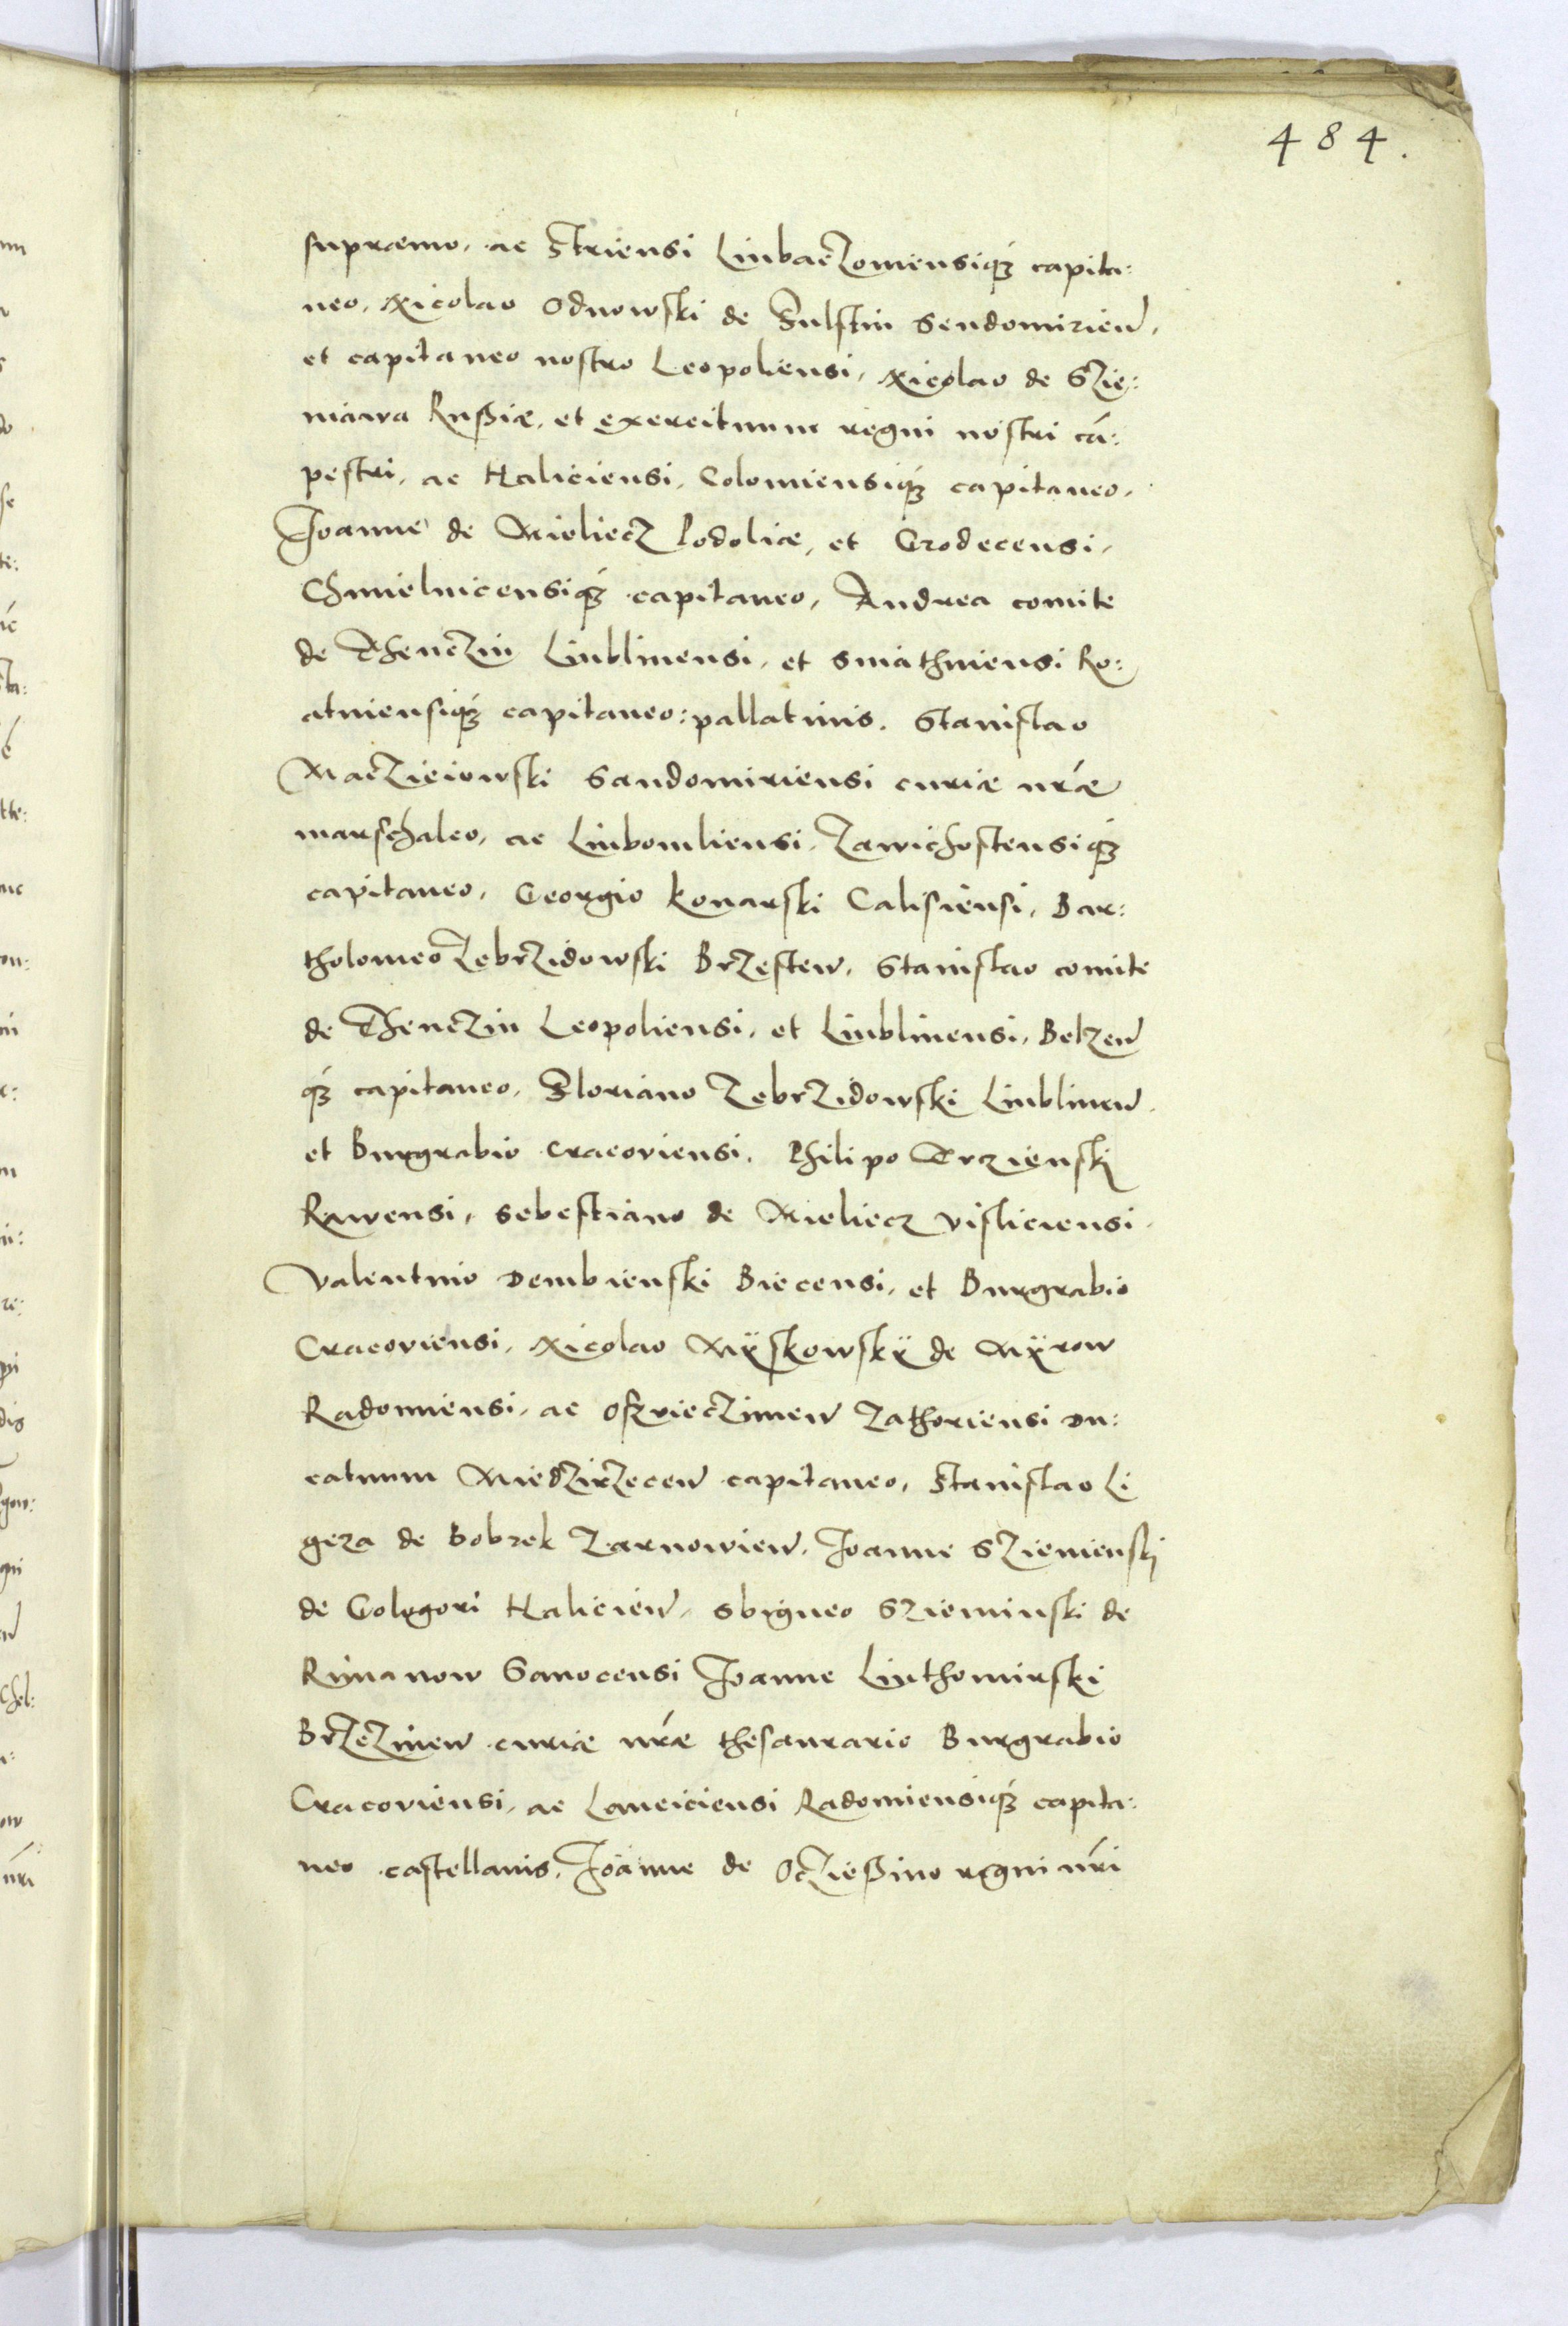 484.
supræmo, ac Striensi Liubaczoviensiq́ꝫ capita:
neo, Nicolao Odnowski de Fulstin Sendomirien̄,
et capitaneo nostro Leopoliensi, Nicolao de Szie:
niawa Rußiæ, et exercituum regni nostri cā:
pestri, ac Haliciensi, Colomiensiq́ꝫ capitaneo,
Joanne de Mieliecz Podoliæ, et Grodecensi,
Chmielnicensiq́ꝫ capitaneo, Andrea comite
de Thenczin Liublinensi, et Sniathniensi Ro:
atniensiq́ꝫ capitaneo: pallatinis. Stanislao
Macziejowski Sandomiriensi curiæ nr̄æ
marschaleo, ac Liubomliensi, Zawichostensiq́ꝫ
capitaneo, Georgio Konarski Calisiensi, Bar:
tholomeo Zebrzidowski Brzesten̄, Stanislao comite
de Thenczin Leopoliensi, et Liublinensi, Belzen̄
q́ꝫ capitaneo, Floriano Zebrzidowski Liublinen̄,
et Burgrabio Cracoviensi. Philipo Trzienski
Rawensi, Sebestiano de Mieliecz Visliciensi,
Valentino Dembienski Biecensi, et Burgrabio
Cracoviensi, Nicolao Mÿskowskÿ de Mÿrow
Radomiensi, ac Oszvieczimen̄ Zathoriensi du:
catuum Miedzirzecen̄ capitaneo, Stanislao Li
geza de Bobrek Zarnovien̄, Joanne Sziemienski
de Gologori Halicien̄, Sbigneo Szieminski de
Rimanow Sanocensi Joanne Liuthomirski
Brzezinen̄ curiæ nr̄æ thesaurario Burgrabio
Cracoviensi, ac Lanciciensi Radomiensiq́ꝫ capita:
neo castellanis, Joanne de Oczießino regni nr̄i